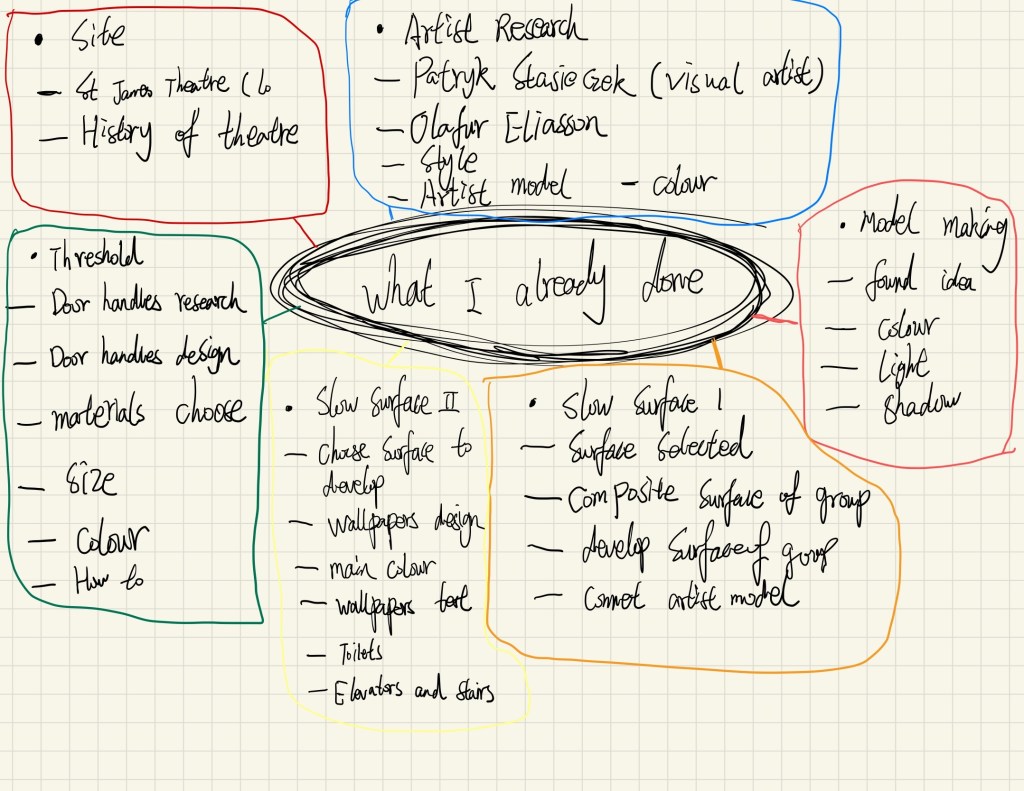 • Site
— St James Theatre (Lo
— History of theatre
• Artist Research
— Patryk Stasieczek (visual artist)
— Olafur Eliasson
— Style
— Artist model - colour
What I already done
• Threshold
— Door handles research
— Door handles design
— materials choose
— size
— colour
— How to
• Slow Surface II
— choose surface to
develop
— wallpapers design
— main colour
— wallpapers test
— Toilets
— Elevators and stairs
• Slow Surface 1
— Surface Selected
— Composite surface of group
— develop surface of group
— Connet artist model
• Model making
— found idea
— colour
— light
— shadow